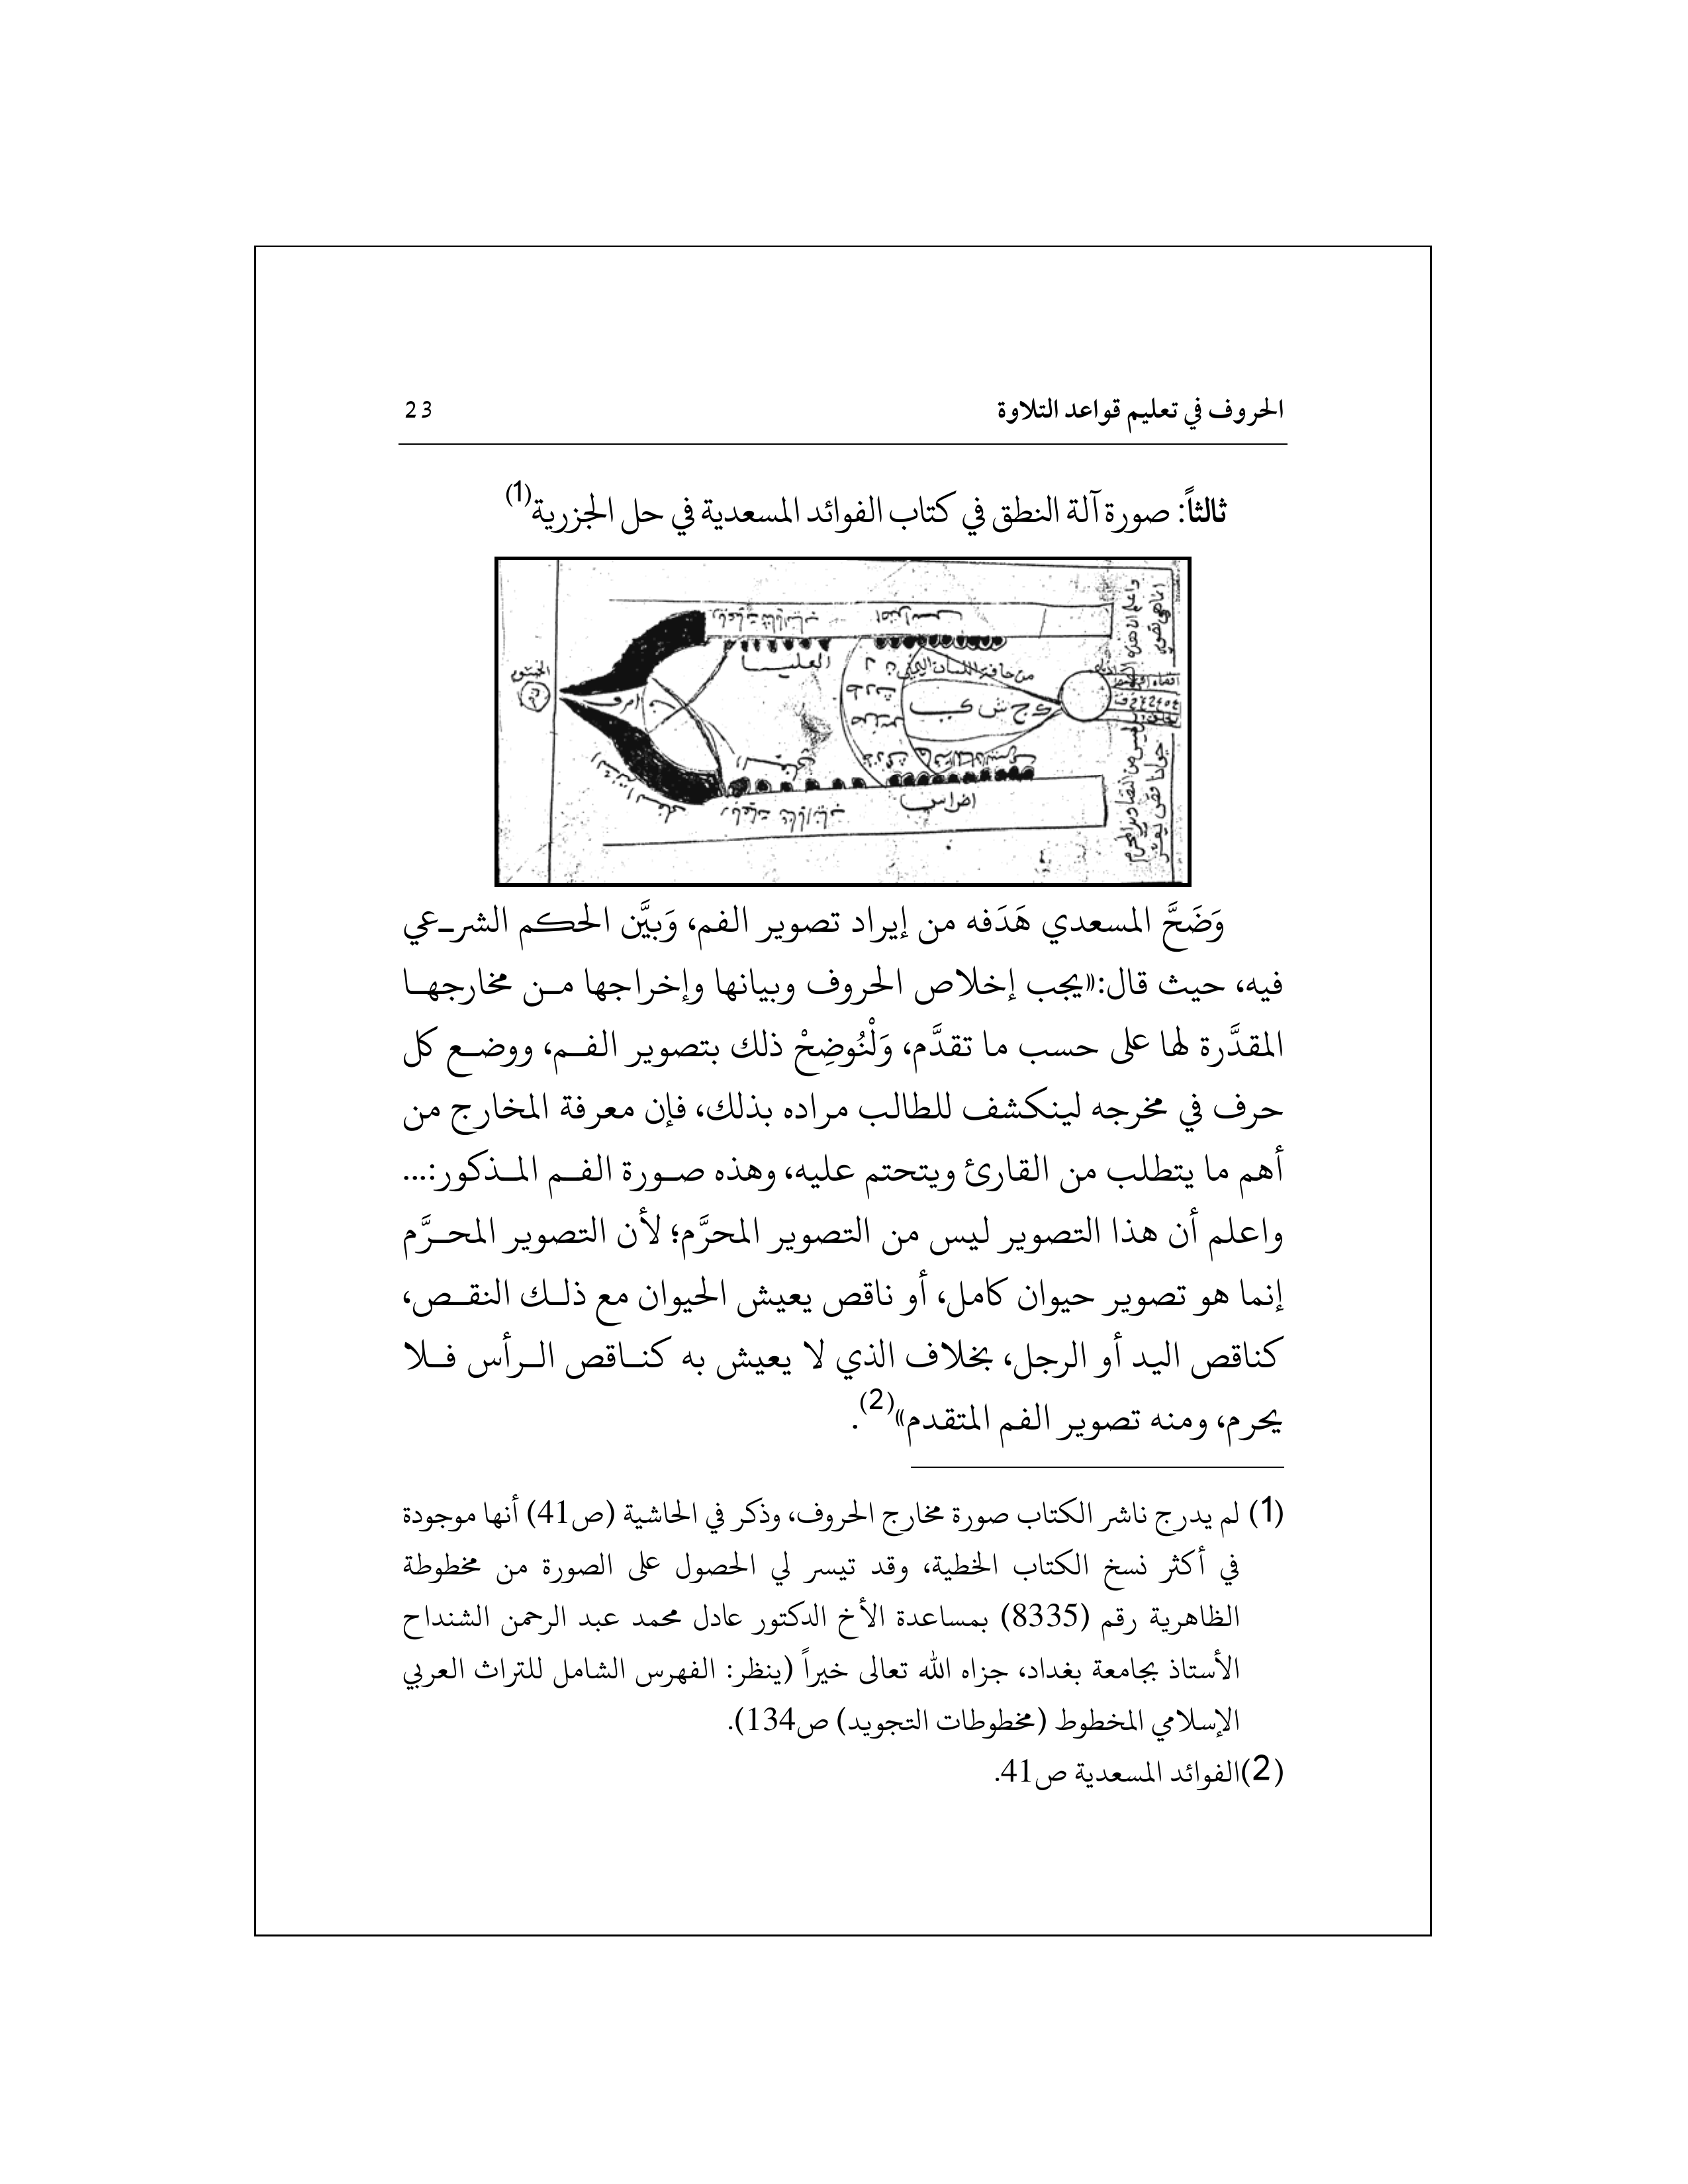 الحروف في تعليم قواعد التلاوة 23
ثالثاً: صورة آلة النطق في كتاب الفوائد المسعدية في حل الجزرية(1)
العليا
من حافة اللسان اليمنى
ج ش ي
اضراس
وَضَحَّ المسعدي هَدَفه من إيراد تصوير الفم، وَبيَّن الحكم الشرـعي
فيه، حيث قال:«يجب إخلاص الحروف وبيانها وإخراجها مـن مخارجهـا
المقدَّرة لها على حسب ما تقدَّم، وَلْنُوضِحْ ذلك بتصوير الفـم، ووضـع كل
حرف في مخرجه لينكشف للطالب مراده بذلك، فإن معرفة المخارج من
أهم ما يتطلب من القارئ ويتحتم عليه، وهذه صـورة الفـم المـذكور:...
واعلم أن هذا التصوير ليس من التصوير المحرَّم؛ لأن التصوير المحـرَّم
إنما هو تصوير حيوان كامل، أو ناقص يعيش الحيوان مع ذلـك النقـص،
كناقص اليد أو الرجل، بخلاف الذي لا يعيش به كنـاقص الـرأس فـلا
يحرم، ومنه تصوير الفم المتقدم»(2).
(1) لم يدرج ناشر الكتاب صورة مخارج الحروف، وذكر في الحاشية (ص41) أنها موجودة
في أكثر نسخ الكتاب الخطية، وقد تيسر لي الحصول على الصورة من مخطوطة
الظاهرية رقم (8335) بمساعدة الأخ الدكتور عادل محمد عبد الرحمن الشنداح
الأستاذ بجامعة بغداد، جزاه الله تعالى خيراً (ينظر: الفهرس الشامل للتراث العربي
الإسلامي المخطوط (مخطوطات التجويد) ص134).
(2)الفوائد المسعدية ص41.